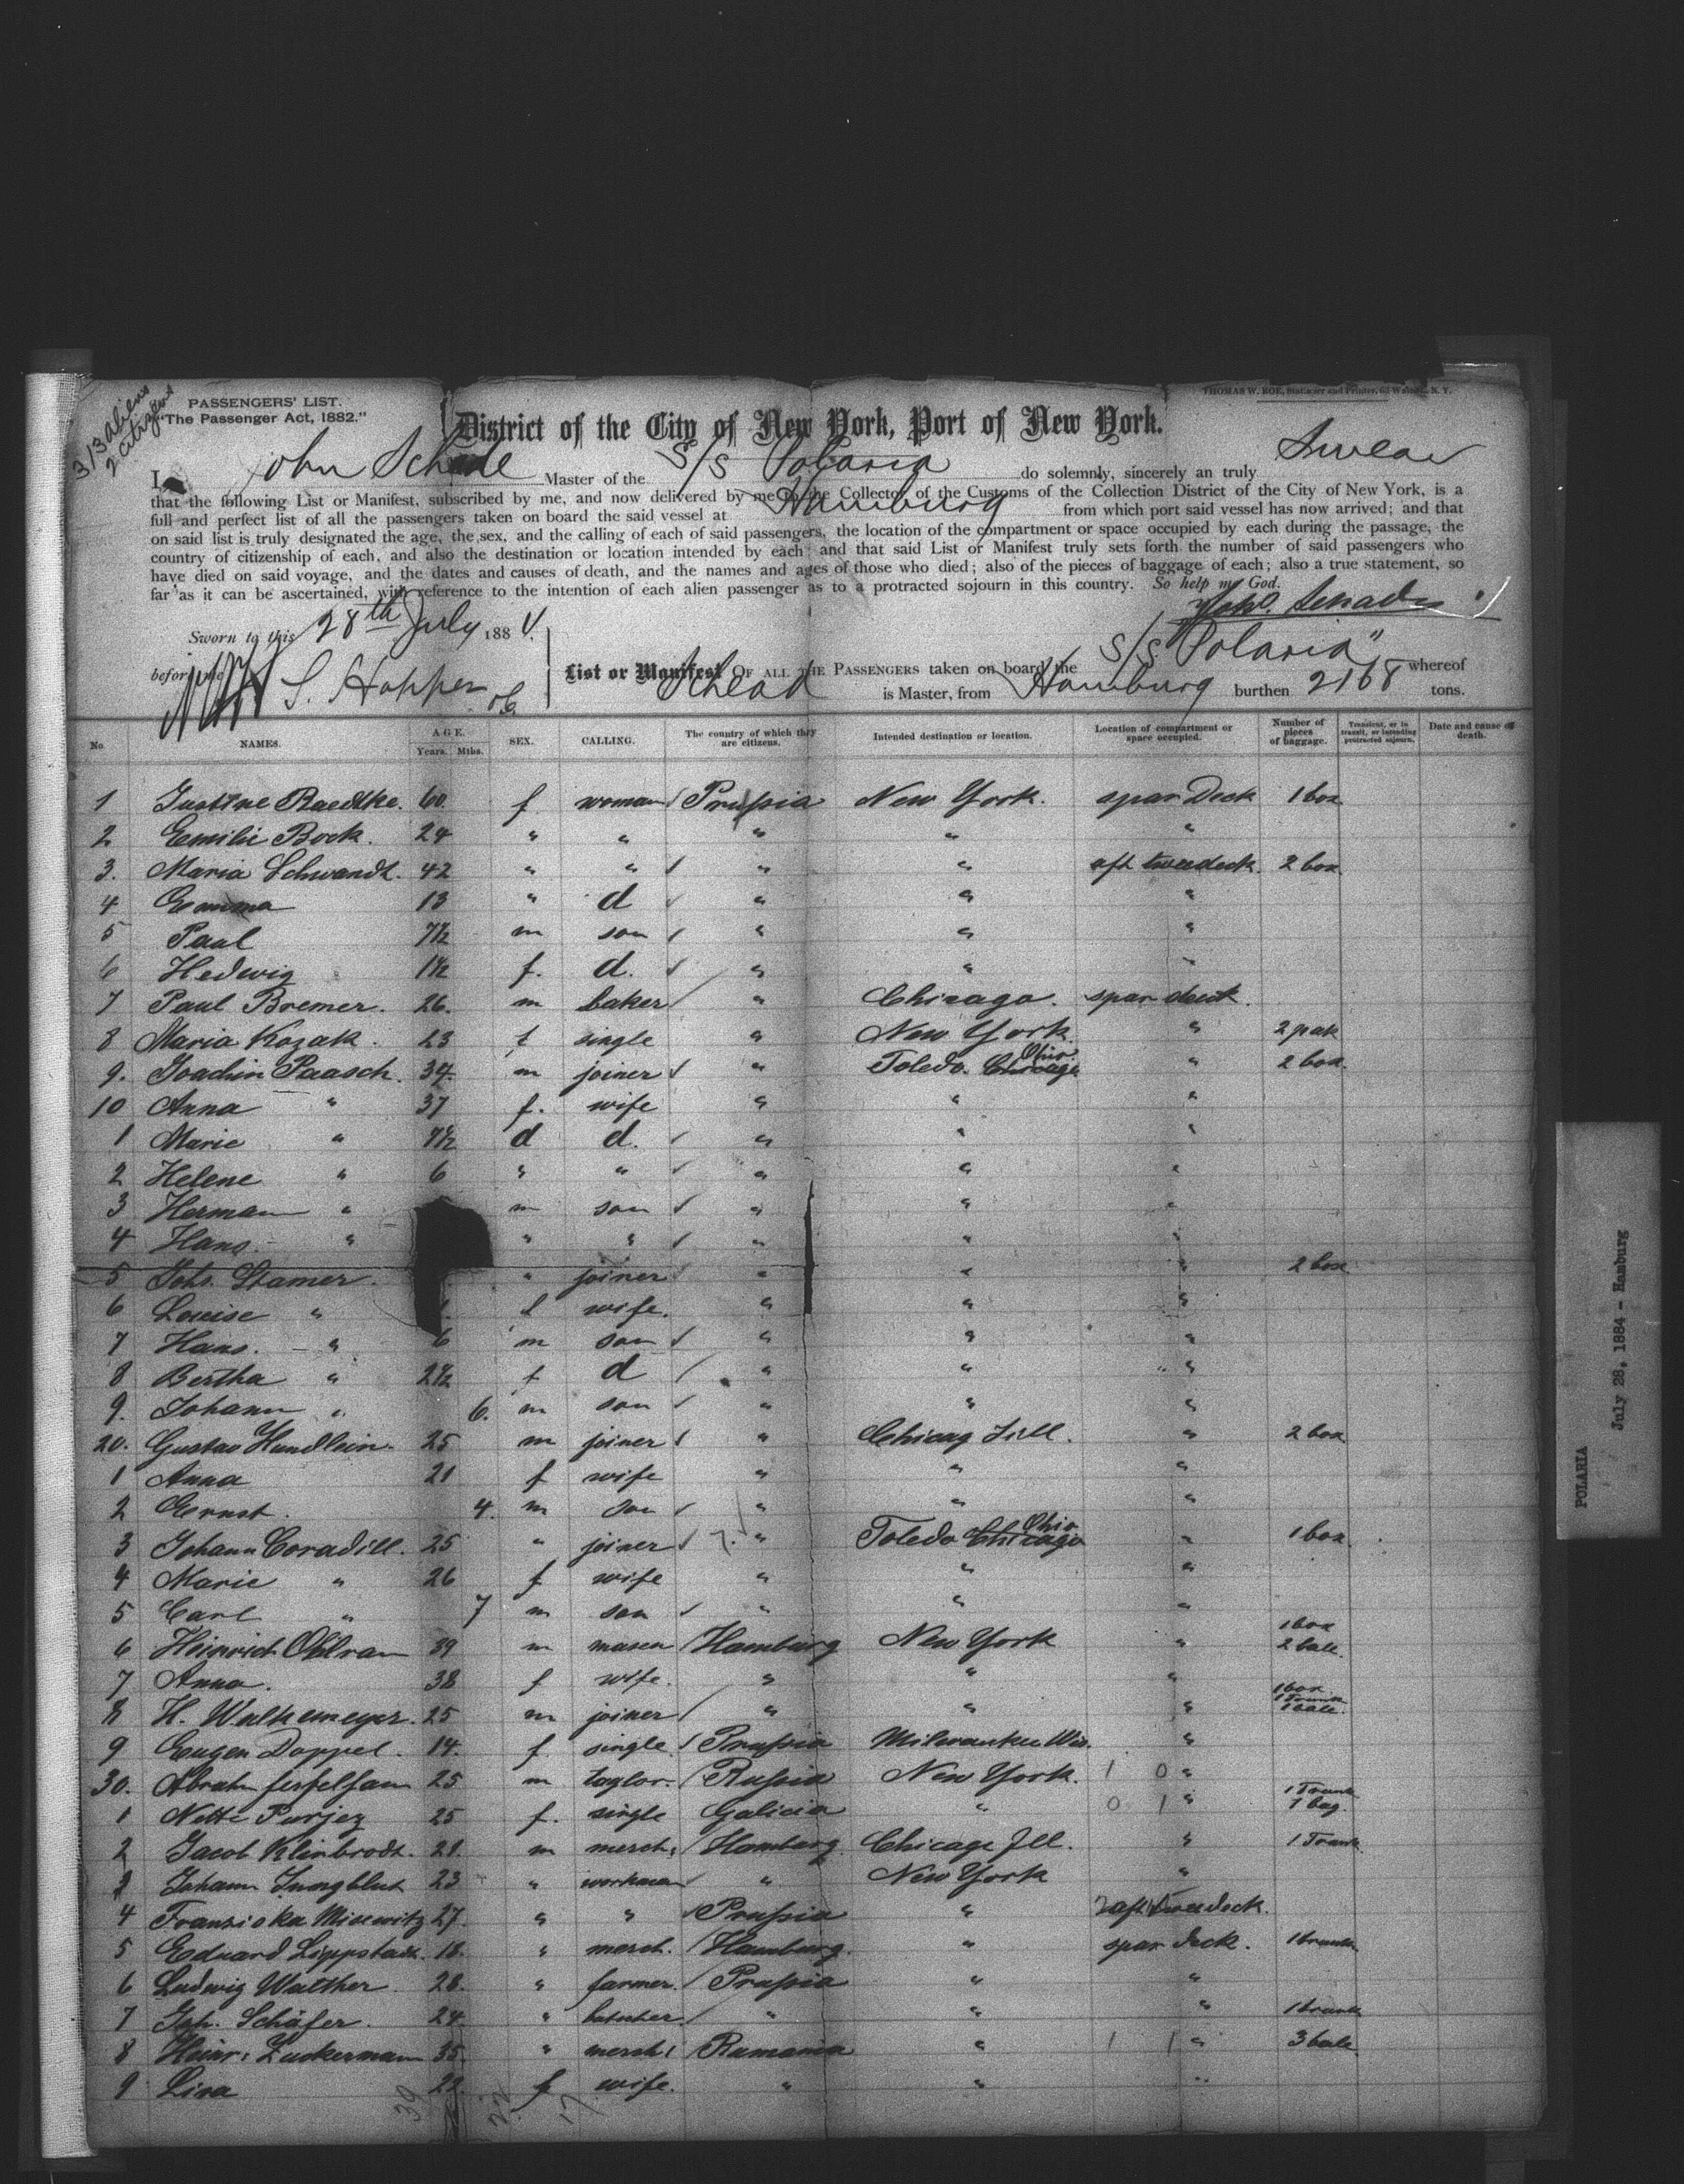 313 aliens
2 citizens
PASSENGERS' LIST.
"The Passenger Act, 1882."
THOMAS W. ROE, Stationer and Printer, N. Y.
District of the City of New York, Port of New York.
I, John Schade Master of the S/S Polaria do solemnly, sincerely an truly Swear
that the following List or Manifest, subscribed by me, and now delivered by me to the Collector of the Customs of the Collection District of the City of New York, is a
full and perfect list of all the passengers taken on board the said vessel at Hamburg from which port said vessel has now arrived; and that
on said list is truly designated the age, the sex, and the calling of each of said passengers, the location of the compartment or space occupied by each during the passage, the
country of citizenship of each, and also the destination or location intended by each; and that said List or Manifest truly sets forth the number of said passengers who
have died on said voyage, and the dates and causes of death, and the names and ages of those who died; also of the pieces of baggage of each; also a true statement, so
far as it can be ascertained, with reference to the intention of each alien passenger as to a protracted sojourn in this country. So help me God.
Sworn to this 28th July 1884.
before me S. Hopper
List or Manifest OF ALL THE PASSENGERS taken on board the S/S "Polaria" whereof
Schead is Master, from Hamburg burthen 2168 tons.
No. NAMES. AGE. Years. Mths. SEX. CALLING. The country of which they are citizens. Intended destination or location. Location of compartment or space occupied. Number of pieces of baggage. Transient, or in transit, or intending protracted sojourn. Date and cause of death.
1 Justine Raedtke. 60. f woman Prussia New York. spar Deck 1 box
2 Emilie Bock. 24 " " " " "
3. Maria Schwandt. 42 " " " " aft tweedeck. 2 box
4 Emma 13 " d " " "
5 Paul 7½ m son " " "
6 Hedwig 1½ f. d. " " "
7 Paul Bremer. 26. m baker " Chicago. spar deck.
8 Maria Kozak. 23 f single " New York. " 2 pak
9. Joachin Paasch. 34. m joiner " Toledo. Chicago Ohio. " 2 box.
10 Anna " 37 f. wife " " "
1 Marie " 7½ d d. " " "
2 Helene " 6 " " " " "
3 Herman " m son " " "
4 Hans. " " " " " "
5 Johs. Stamer. " joiner " " " 2 box
6 Louise " f wife. " " "
7 Hans. " 6 m son " " "
8 Bertha " 2½ f d " " "
9. Johann " 6. m son " " "
20. Gustav Hundlein. 25 m joiner " Chicag Jill. " 2 box
1 Anna 21 f wife " " "
2 Ernst. 4. m son " " "
3 Johann Coradill. 25 " joiner " Toledo Chicago Ohio " 1 box.
4 Marie " 26 f wife " " "
5 Carl " 7 m son " " "
6 Heinrich 39 m mason Hamburg New York " 1 box 2 bale.
7 Anna. 38 f wife. " " "
8 H. Walkemeyer. 25 m joiner " " " 1 box 1 Trunk 1 bale.
9 Eugen Doppel. 14. f. single. Prussia Milwaukee Wis. "
30. Abrah 25 m taylor. Russia New York. 1 0 "
1 Nette Purjez 25 f. single Galicia " 0 1 " 1 Trunk 1 bag.
2 Jacob Klinbrodt. 21. m merch. Hamburg. Chicago Ill. " 1 Trunk
3 Johann Jungblut 23 " workman " New York "
4 Franziska Misewitz 27. " " Prussia " 2 aft tweedeck.
5 Eduard Lippstadt. 18. " merch. Hamburg. " spar deck. 1 trunk
6 Ludwig Walther. 28. " farmer. Prussia " "
7 Joh. Schäfer. 24 " butcher " " " 1 trunk
8 Heinr. Zuckermann 35. " merch. Rumania " 1 1 " 3 bale
9 Lina 22. f wife. " " "
39 22 17
POLARIA July 28, 1884 - Hamburg